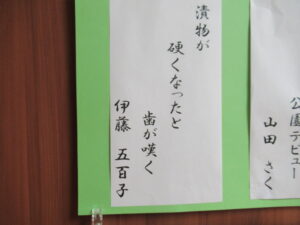 公園デビュー
山田 さく
漬物が
硬くなったと
歯が嘆く
伊藤 五百子